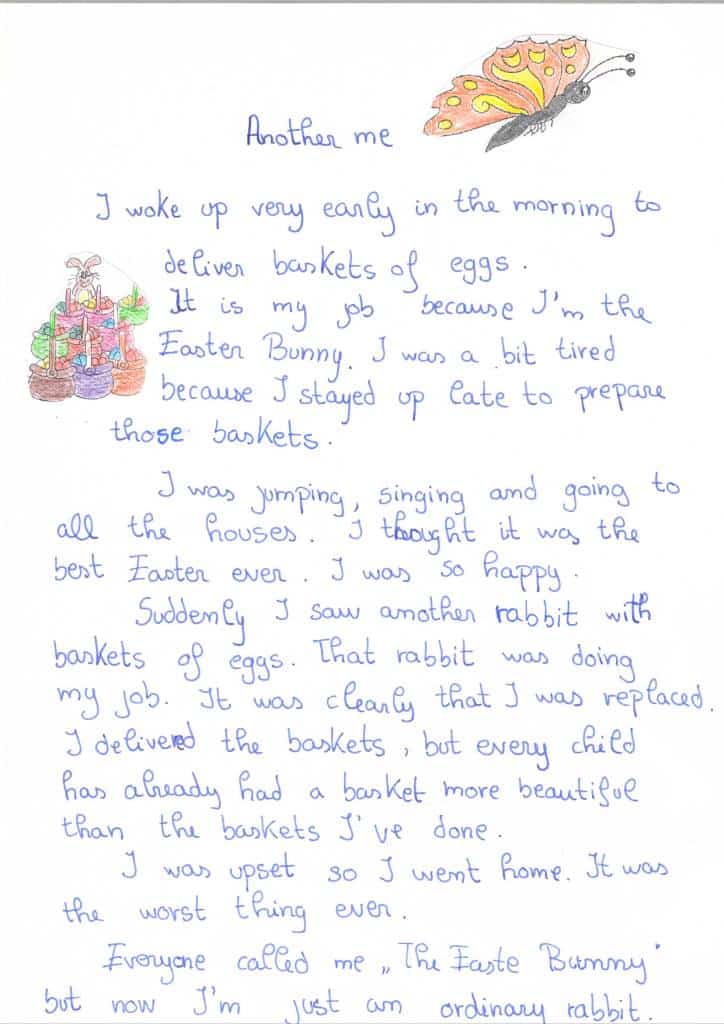 Another me
I woke up very early in the morning to
deliver baskets of eggs.
It is my job because I'm the
Easter Bunny. I was a bit tired
because I stayed up late to prepare
those baskets.
I was jumping, singing and going to
all the houses. I thought it was the
best Easter ever. I was so happy.
Suddenly I saw another rabbit with
baskets of eggs. That rabbit was doing
my job. It was clearly that I was replaced.
I delivered the baskets, but every child
has already had a basket more beautiful
than the baskets I've done.
I was upset so I went home. It was
the worst thing ever.
Everyone called me „The Easte Bunny"
but now I'm just an ordinary rabbit.